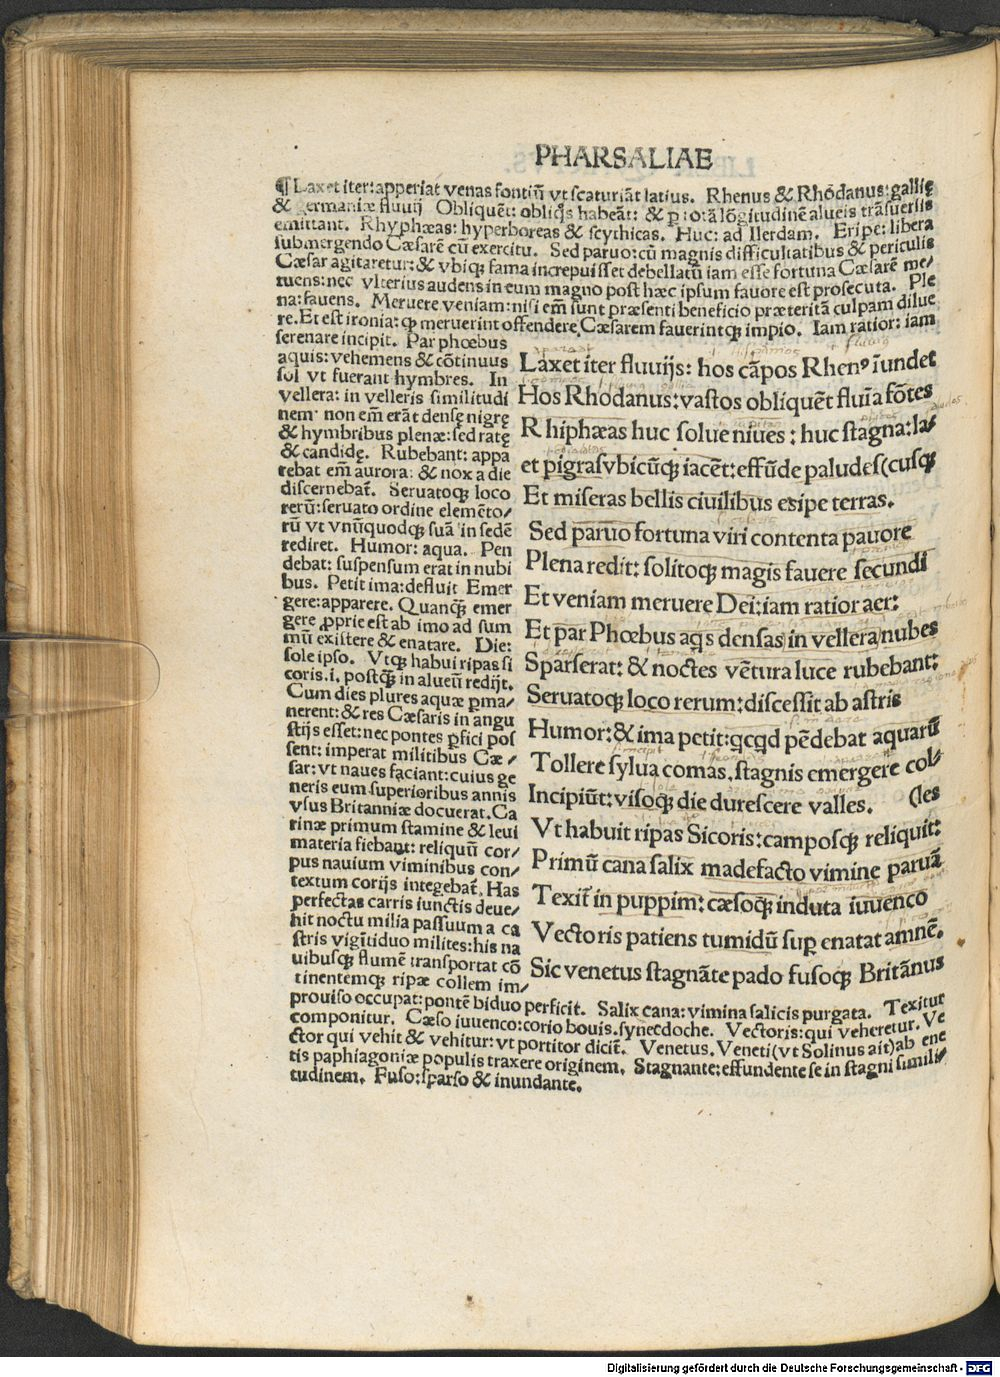 PHARSALIAE
¶ Laxet iter: apperiat venas fontiū vt scaturiāt latius. Rhenus & Rhōdanus: gallię
& germaniæ fluuij Obliquēt: obliq̄s habeāt: & ꝑ totā lōgitudinē alueis trāsuersis
emittant. Rhyphæas: hyperboreas & scythicas. Huc: ad Ilerdam. Eripe: libera
submergendo Cæsarē cū exercitu. Sed paruo: cū magnis difficultatibus & periculis
Cæsar agitaretur: & vbiqꝫ fama increpuisset debellatū iam esse fortuna Cæsarē me⸗
tuens: nec vlterius audens in eum magno post hæc ipsum fauore est prosecuta. Ple
na: fauens. Meruere veniam: nisi em̄ sunt præsenti beneficio præteritā culpam dilue
re. Et est ironia: ꝙ meruerint offendere, Cæsarem fauerintqꝫ impio. Iam ratior: iam
serenare incipit. Par phœbus
aquis: vehemens & cōtinuus
sol vt fuerant hymbres. In
vellera: in velleris similitudi
nem· non em̄ erāt densę nigrę
& hymbribus plenæ: sed ratę
& candidę. Rubebant: appa
rebat em̄ aurora: & nox a die
discernebat̄. Seruatoqꝫ loco
rerū: seruato ordine elemēto⸗
rū vt vnūquodqꝫ suā in sedē
rediret. Humor: aqua. Pen
debat: suspensum erat in nubi
bus. Petit ima: defluit Emer
gere: apparere. Quanqꝫ̄ emer
gere ꝓprie est ab imo ad sum
mū existere & enatare. Die:
sole ipso. Vtqꝫ habui ripas si
coris .i. postqꝫ̄ in alueū redijt.
Cum dies plures aquæ ꝑma⸗
nerent: & res Cæsaris in angu
stijs esset: nec pontes ꝑfici pos
sent: imperat militibus Cæ⸗
sar: vt naues faciant: cuius ge
neris eum superioribus annis
vsus Britanniæ docuerat. Ca
rinæ primum stamine & leui
materia fiebant: reliquū cor⸗
pus nauium viminibus con⸗
textum corijs integebat̄. Has
perfectas carris iunctis deue⸗
hit noctu milia passuum a ca
stris vigīti duo milites: his na
uibusqꝫ flumē transportat cō
tinentemqꝫ ripæ collem im⸗
prouiso occupat: pontē biduo perficit. Salix cana: vimina salicis purgata. Texitur
componitur. Cæso iuuenco: corio bouis. synecdoche. Vectoris: qui veheretur. Ve
ctor qui vehit & vehitur: vt portitor dicit̄. Venetus. Veneti (vt Solinus ait) ab ene
tis paphiagoniæ populis traxere originem. Stagnante: effundente se in stagni simili⸗
tudinem. Fuso: sparso & inundante.
Laxet iter fluuijs: hos cāpos Rhenꝰ īundet
Hos Rhodanus: vastos obliquēt fluīa fōtes
Rhiphæas huc solue niues: huc stagna: la⸗
et pigras vbicūqꝫ iacēt: effūde paludes (cusqꝫ
Et miseras bellis ciuilibus eripe terras.
Sed paruo fortuna viri contenta pauore
Plena redit: solitoqꝫ magis fauere secundi
Et veniam meruere Dei: iam ratior aer:
Et par Phœbus aq̄s densas in vellera nubes
Sparserat: & noctes vētura luce rubebant:
Seruatoqꝫ loco rerum: discessit ab astris
Humor: & ima petit: qcqd pēdebat aquarū
Tollere sylua comas, stagnis emergere col⸗
Incipiūt: visoqꝫ die durescere valles. (les
Vt habuit ripas Sicoris: camposqꝫ reliquit:
Primū cana salix madefacto vimine paruā
Texit̄ in puppim: cæsoqꝫ induta iuuenco
Vectoris patiens tumidū suꝑ enatat amnē.
Sic venetus stagnāte pado fusoqꝫ Britānus
Digitalisierung gefördert durch die Deutsche Forschungsgemeinschaft - DFG